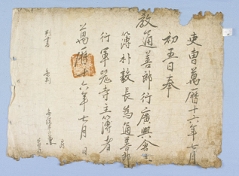 吏曹萬曆十六年七月
初五日奉
教通善郎行廣興倉主
簿朴毅長爲通善郎
行軍器寺主簿者
萬曆十六年七月 日
判書